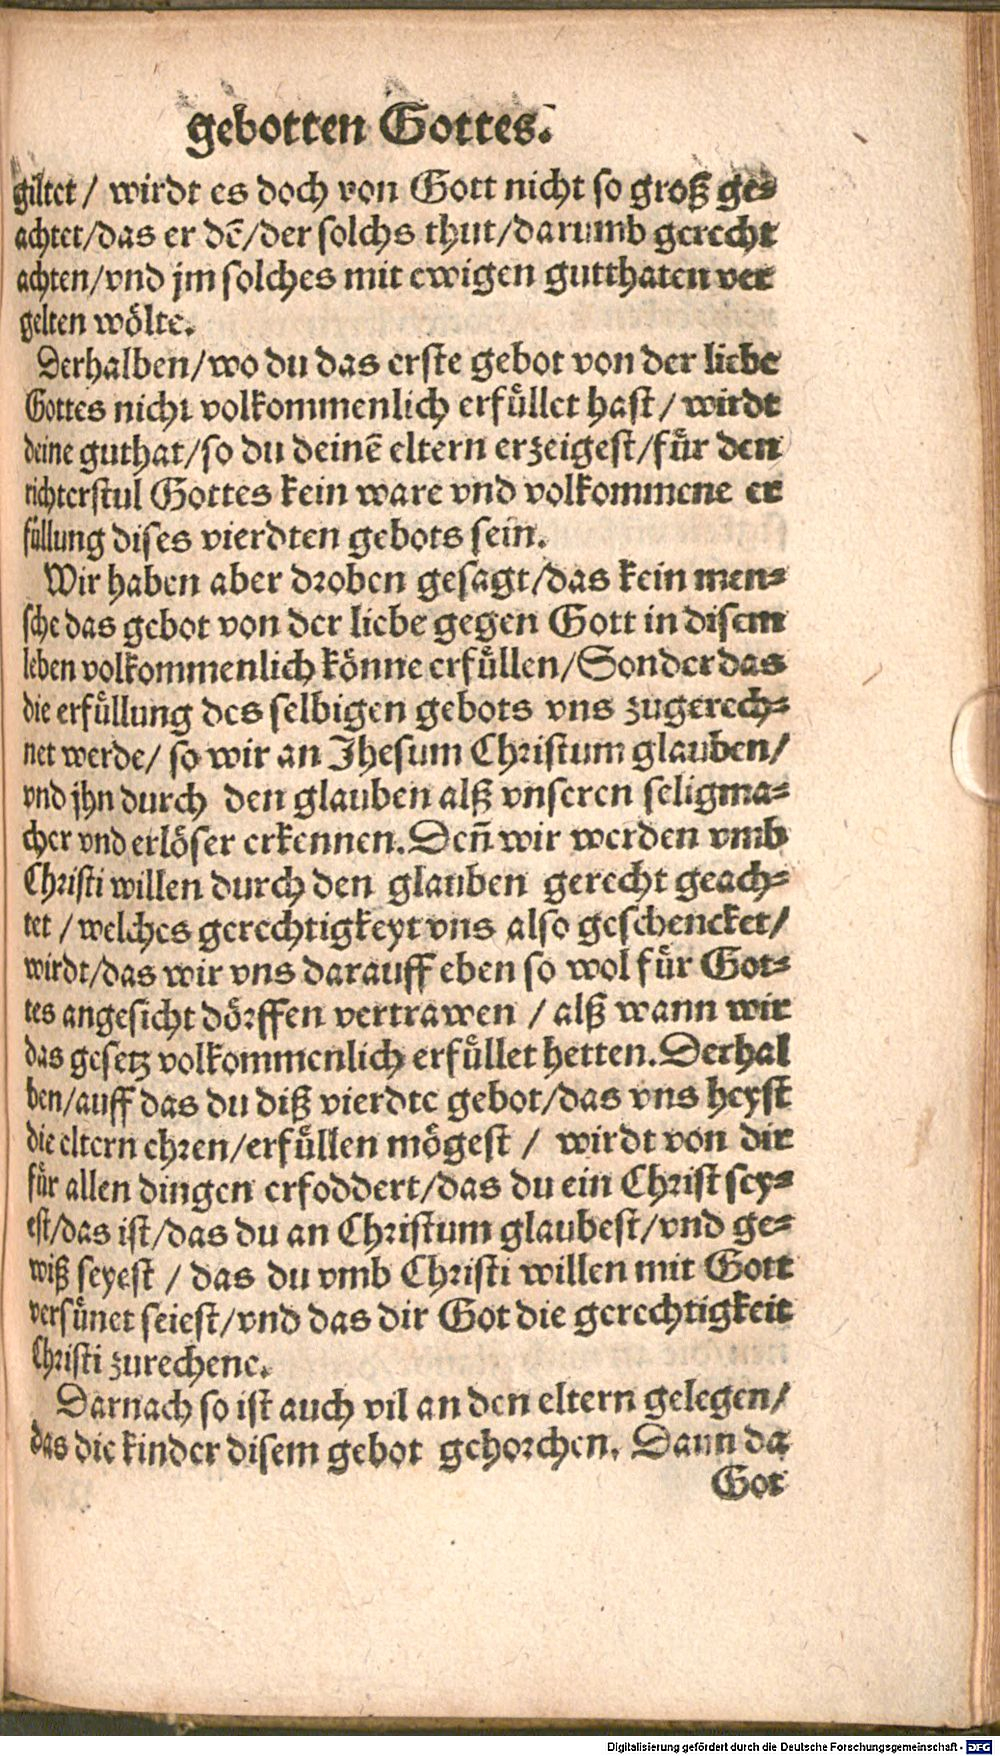 gebotten Gottes.
giltet / wirdt es doch von Gott nicht so groß ge⸗
achtet/das er dẽ/der solchs thut/darumb gerecht
achten/vnd jm solches mit ewigen gutthaten ver
gelten wölte.
Derhalben/wo du das erste gebot von der liebe
Gottes nicht volkommenlich erfüllet hast / wirdt
deine guthat/so du deinẽ eltern erzeigest/für den
richterstul Gottes kein ware vnd volkommene er
füllung dises vierdten gebots sein.
Wir haben aber droben gesagt/das kein men⸗
sche das gebot von der liebe gegen Gott in disem
leben volkommenlich könne erfüllen/Sonder das
die erfüllung des selbigen gebots vns zugerech⸗
net werde/ so wir an Jhesum Christum glauben/
vnd jhn durch den glauben alß vnseren seligma⸗
cher vnd erlöser erkennen. Deñ wir werden vmb
Christi willen durch den glauben gerecht geach⸗
tet / welches gerechtigkeyt vns also geschencket/
wirdt/das wir vns darauff eben so wol für Got⸗
tes angesicht dörffen vertrawen / alß wann wir
das gesetz volkommenlich erfüllet hetten. Derhal
ben/auff das du diß vierdte gebot/das vns heyst
die eltern ehren/erfüllen mögest / wirdt von dir
für allen dingen erfoddert/das du ein Christ sey⸗
est/das ist/das du an Christum glaubest/vnd ge⸗
wiß seyest / das du vmb Christi willen mit Gott
versünet seiest/vnd das dir Got die gerechtigkeit
Christi zurechene.
Darnach so ist auch vil an den eltern gelegen/
das die kinder disem gebot gehorchen. Dann da
Got
Digitalisierung gefördert durch die Deutsche Forschungsgemeinschaft - DFG